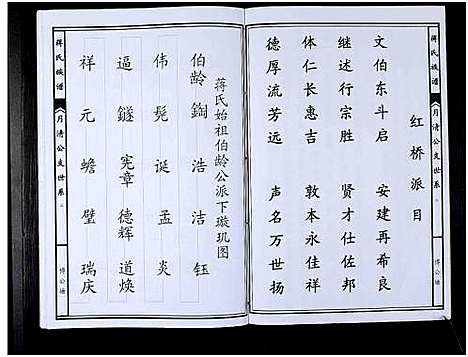 蒋氏族谱
《月清公支世系》
博公塘
红桥派目
文伯东斗启 安建再希良
继述行宗胜 贤才仕佐邦
体仁长惠吉 敦本永佳祥
德厚流芳远 声名万世扬
蒋氏始祖伯龄公派下璇玑图
伯龄 鋾 浩 洁 钰
伟 髡 诞 孟 炎
逼 鐩 宪章 德辉 道焕
祥 元 蟾 璧 瑞庆
蒋氏族谱
《月清公支世系》
博公塘